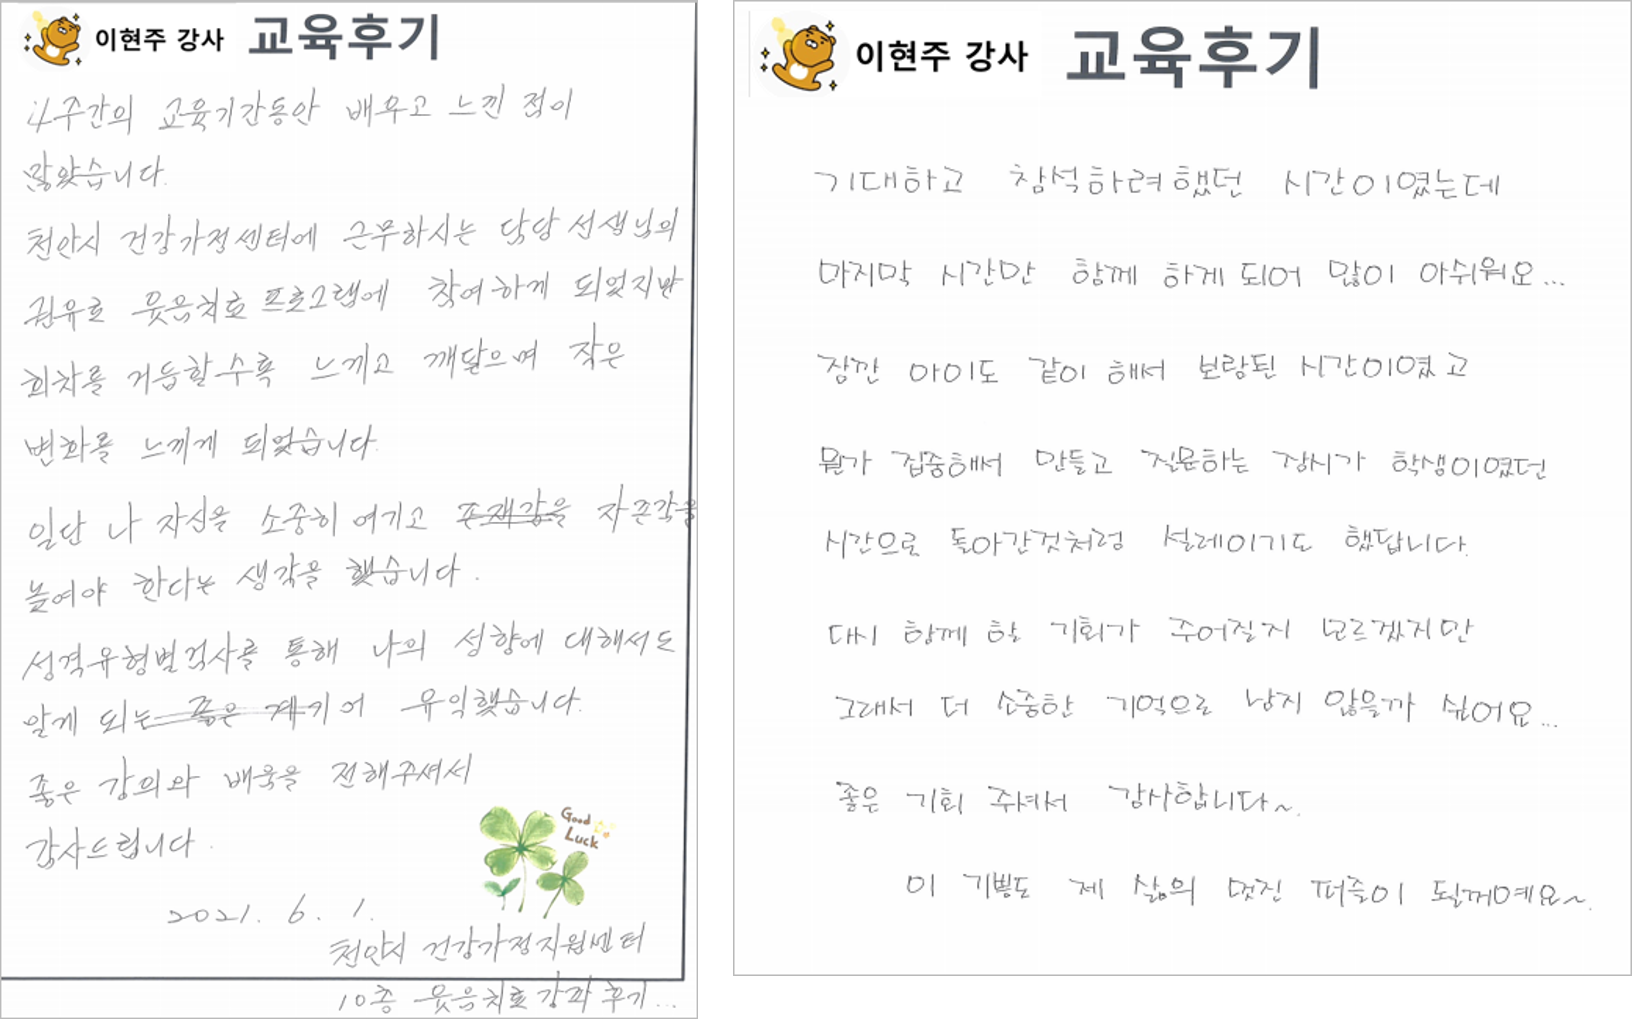 이현주 강사 교육후기
4주간의 교육기간동안 배우고 느낀 점이
많았습니다.
천안시 건강가정센터에 근무하시는 담당선생님의
권유로 웃음치료 프로그램에 참여하게 되었지만
회차를 거듭할수록 느끼고 깨달으며 작은
변화를 느끼게 되었습니다.
일단 나 자신을 소중히 여기고 존재감을 자존감을
높여야 한다는 생각을 했습니다.
성격유형별검사를 통해 나의 성향에 대해서도
알게 되는 좋은 계기어 유익했습니다.
좋은 강의와 배움을 전해주셔서
감사드립니다.
Good
Luck
2021. 6. 1.
천안시 건강가정지원센터
10층 웃음치료강좌 후기...
이현주 강사 교육후기
기대하고 참석하려했던 시간이였는데
마지막 시간만 함께 하게되어 많이 아쉬워요...
잠깐 아이도 같이 해서 보람된 시간이였고
뭔가 집중해서 만들고 질문하는 잠시가 학생이였던
시간으로 돌아간것처럼 설레이기도 했답니다.
다시 함께 할 기회가 주어질지 모르겠지만
그래서 더 소중한 기억으로 남지 않을까 싶어요...
좋은 기회 주셔서 감사합니다~.
이 기쁨도 제 삶의 멋진 퍼즐이 될꺼예요~.